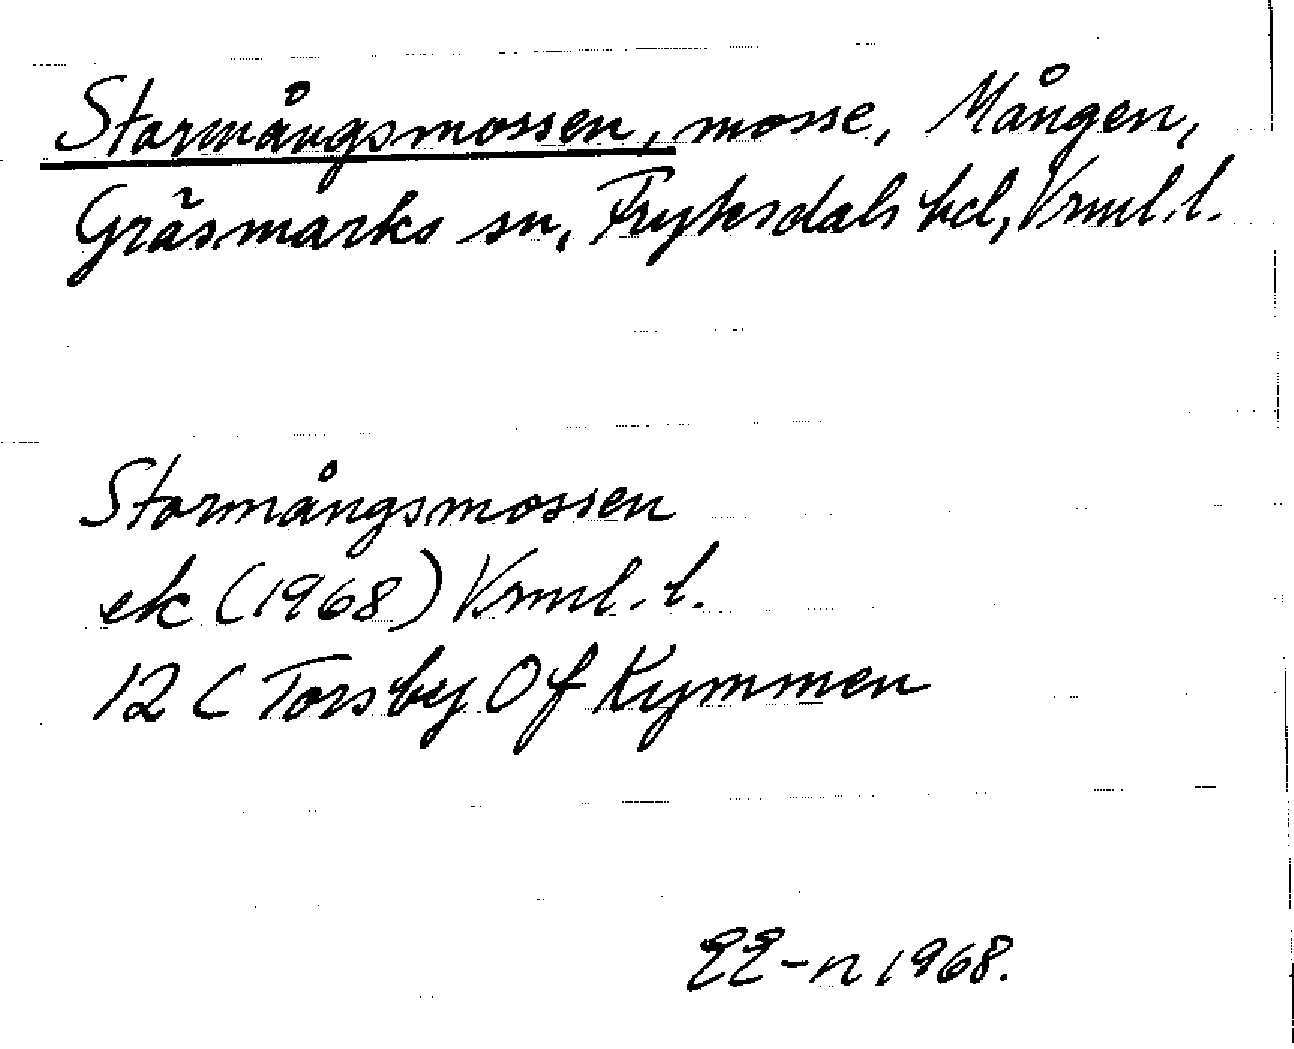 Stormångsmossen, mosse, Mången,
Gräsmarks sn, Fryksdals hd, Vrml.l.
Stormångsmossen
ek (1968) Vrml.l.
12 C Torsby 0f Kymmen
EE-n 1968.